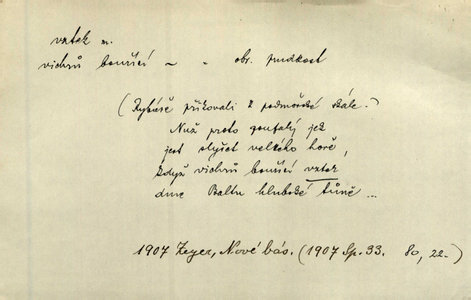 vztek m.
vichrů bouřící ~ ~ obr. prudkost
(Rybáře přikovali k podmořské skále.)
Nuž proto zoufalý jek
jest slyšet velkého hoře,
když vichrů bouřící vztek
dme Baltu hluboké tůně ...
1907 Zeyer, Nové bás. (1907 Sp. 33. 80, 22.)